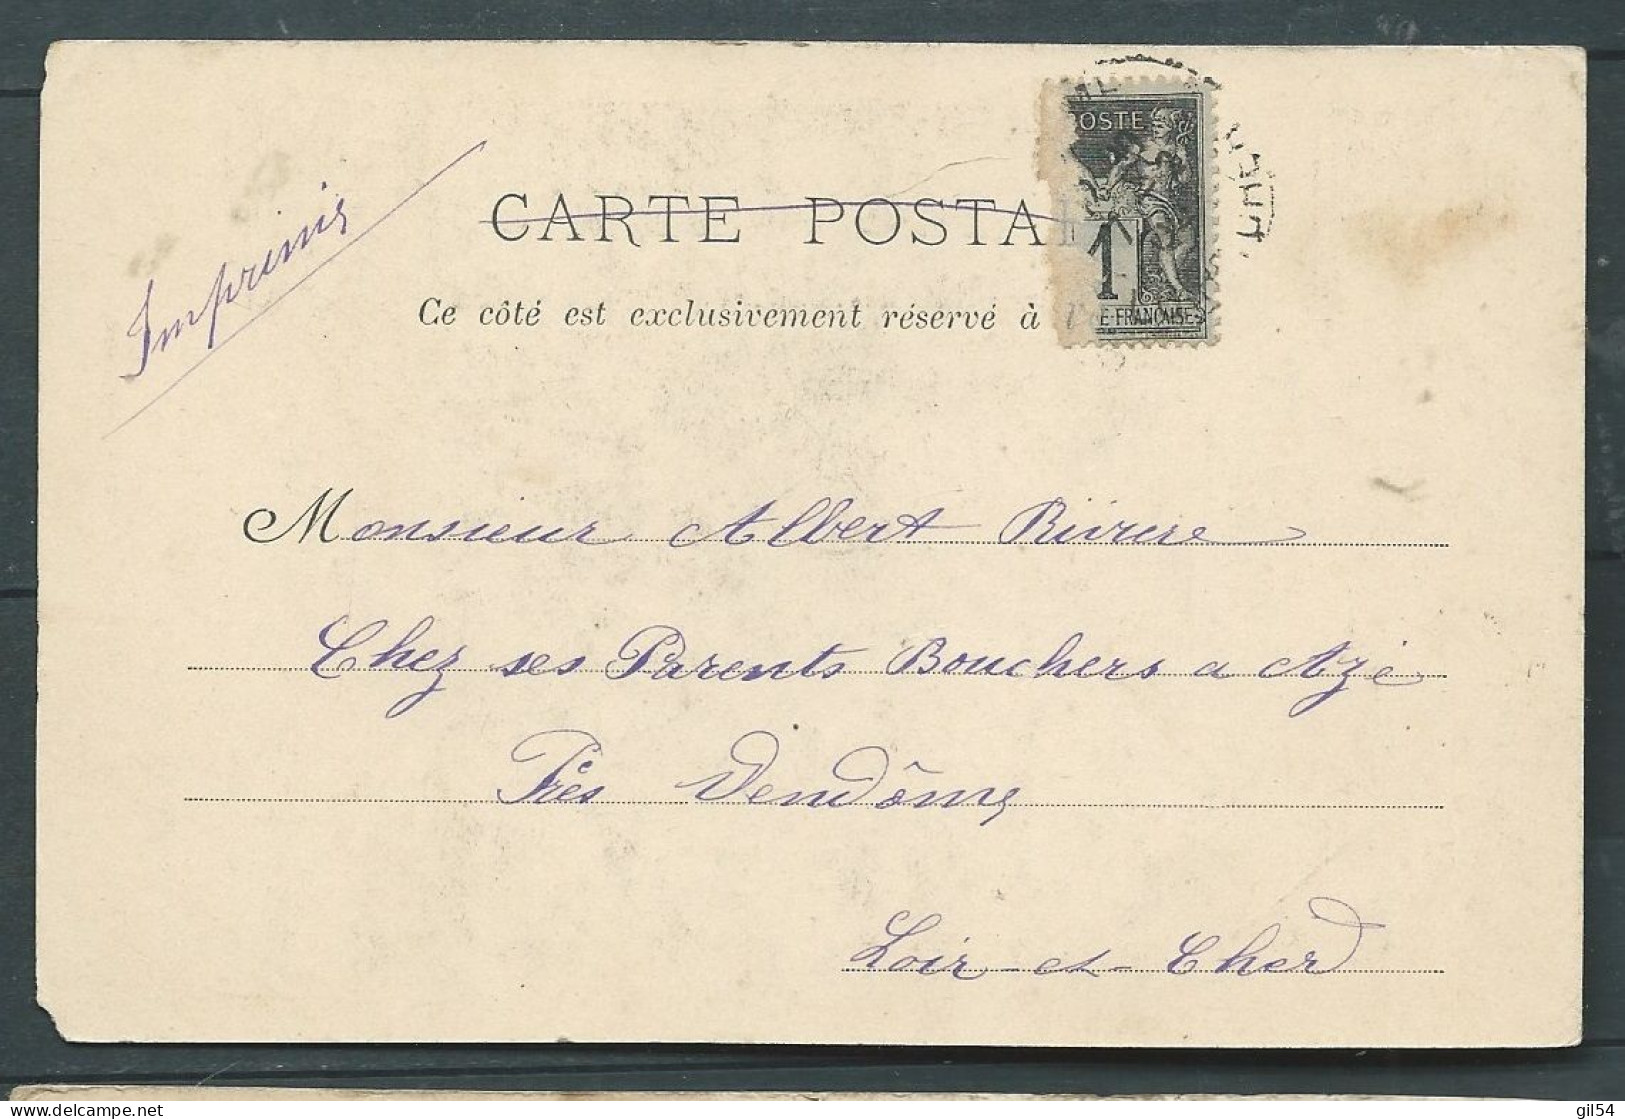 Imprimis
CARTE POSTA
Ce côté est exclusivement réservé à l'
POSTE
1
E-FRANÇAISE
Monsieur Albert Rivière
Chez ses Parents Bouchers a Azé
Près Vendôme
Loir-et-Cher
delcampe.net
gil54